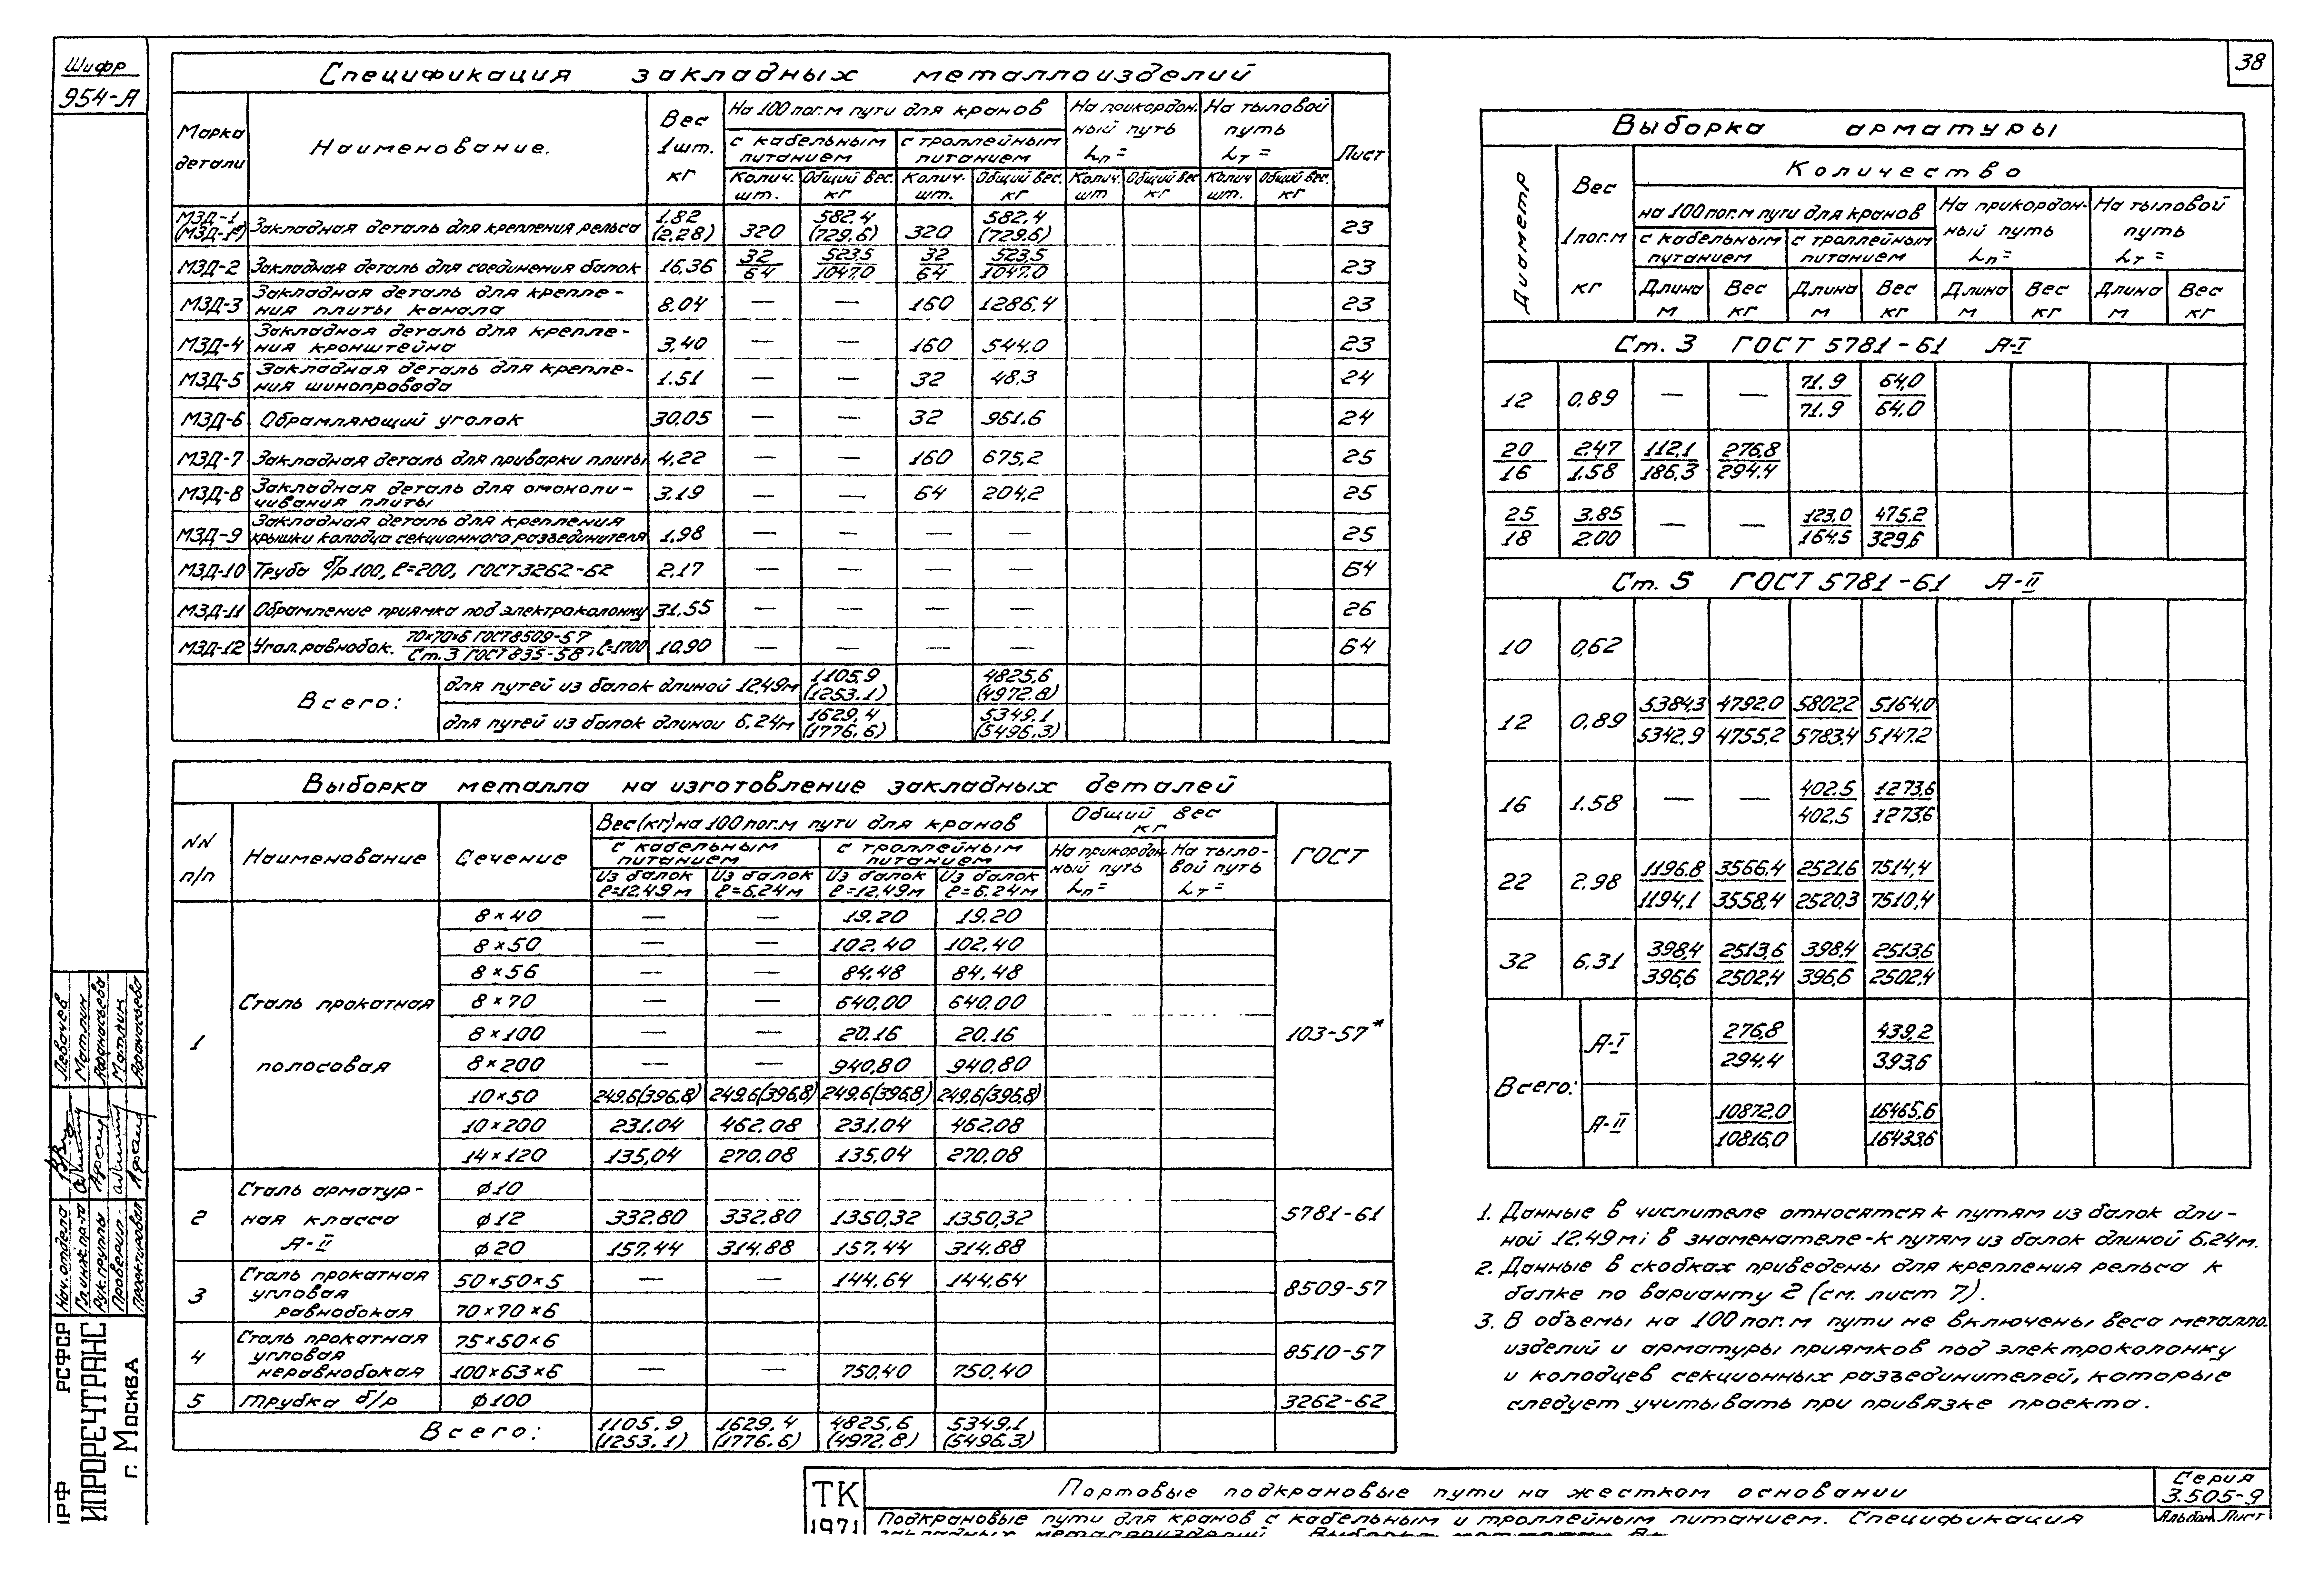 Шифр
954-А
38
Спецификация закладных металлоизделий
Марка детали | Наименование. | Вес 1шт. кг | На 100 пог.м пути для кранов | На прикордонный путь Lп = | На тыловой путь Lт = | Лист
с кабельным питанием | с троллейным питанием
Колич. шт. | Общий вес. кг | Колич. шт. | Общий вес. кг | Колич. шт | Общий вес кг | Колич шт. | Общий вес. кг
МЗД-1 (МЗД-1а) | Закладная деталь для крепления рельса | 1.82 (2.28) | 320 | 582.4 (729.6) | 320 | 582.4 (729.6) | 23
МЗД-2 | Закладная деталь для соединения балок | 16,36 | 32/64 | 523,5/1047.0 | 32/64 | 523,5/1047.0 | 23
МЗД-3 | Закладная деталь для крепления плиты канала | 8.04 | — | — | 160 | 1286,4 | 23
МЗД-4 | Закладная деталь для крепления кронштейна | 3,40 | — | — | 160 | 544,0 | 23
МЗД-5 | Закладная деталь для крепления шинопровода | 1.51 | — | — | 32 | 48,3 | 24
МЗД-6 | Обрамляющий уголок | 30,05 | — | — | 32 | 961,6 | 24
МЗД-7 | Закладная деталь для приварки плиты | 4,22 | — | — | 160 | 675,2 | 25
МЗД-8 | Закладная деталь для омоноличивания плиты | 3.19 | — | — | 64 | 204,2 | 25
МЗД-9 | Закладная деталь для крепления крышки колодца секционного разъединителя | 1,98 | — | — | — | — | 25
МЗД-10 | Труба б/р 100, ℓ=200, ГОСТ 3262-62 | 2,17 | — | — | — | — | 64
МЗД-11 | Обрамление приямка под электроколонку | 31,55 | — | — | — | — | 26
МЗД-12 | Угол. равнобок. 70×70×6 ГОСТ 8509-57/Ст.3 ГОСТ 535-58, ℓ=1700 | 10,90 | — | — | — | — | 64
Всего: | для путей из балок длиной 12,49м | 1105,9 (1253.1) | 4825,6 (4972.8)
для путей из балок длиной 6,24м | 1629,4 (1776,6) | 5349,1 (5496,3)
Выборка металла на изготовление закладных деталей
NN п/п | Наименование | Сечение | Вес (кг) на 100 пог.м пути для кранов | Общий вес кг | ГОСТ
с кабельным питанием | с троллейным питанием | На прикордонный путь Lп = | На тыловой путь Lт =
Из балок ℓ=12.49м | Из балок ℓ=6,24м | Из балок ℓ=12,49м | Из балок ℓ=6,24м
1 | Сталь прокатная полосовая | 103-57*
8×40 | — | — | 19.20 | 19.20
8×50 | — | — | 102.40 | 102.40
8×56 | — | — | 84.48 | 84.48
8×70 | — | — | 640,00 | 640,00
8×100 | — | — | 20.16 | 20.16
8×200 | — | — | 940,80 | 940,80
10×50 | 249.6(396,8) | 249.6(396,8) | 249.6(396,8) | 249.6(396,8)
10×200 | 231.04 | 462,08 | 231,04 | 462.08
14×120 | 135,04 | 270.08 | 135.04 | 270,08
2 | Сталь арматурная класса А-II | 5781-61
ф10
ф12 | 332.80 | 332,80 | 1350,32 | 1350,32
ф20 | 157.44 | 314.88 | 157.44 | 314.88
3 | Сталь прокатная угловая равнобокая | 8509-57
50×50×5 | — | — | 144.64 | 144,64
70×70×6
4 | Сталь прокатная угловая неравнобокая | 8510-57
75×50×6
100×63×6 | — | — | 750,40 | 750,40
5 | Трубка б/р | ф100 | 3262-62
Всего: | 1105.9 (1253.1) | 1629.4 (1776.6) | 4825,6 (4972.8) | 5349,1 (5496.3)
Выборка арматуры
Диаметр | Вес 1 пог.м кг | Количество
на 100 пог.м пути для кранов | На прикордонный путь Lп= | На тыловой путь Lт =
с кабельным питанием | с троллейным питанием
Длина м | Вес кг | Длина м | Вес кг | Длина м | Вес кг | Длина м | Вес кг
Ст. 3 ГОСТ 5781-61 А-I
12 | 0,89 | — | — | 71.9/71.9 | 64,0/64.0
20/16 | 2.47/1.58 | 112,1/186,3 | 276,8/294.4
25/18 | 3.85/2.00 | — | — | 123,0/164,5 | 475.2/329,6
Ст. 5 ГОСТ 5781-61 А-II
10 | 0,62
12 | 0,89 | 5384,3/5342.9 | 4792.0/4755,2 | 5802,2/5783,4 | 5164,0/5147.2
16 | 1.58 | — | — | 402.5/402,5 | 1273,6/1273,6
22 | 2.98 | 1196.8/1194,1 | 3566,4/3558,4 | 2521.6/2520,3 | 7514,4/7510,4
32 | 6,31 | 398,4/396,6 | 2513,6/2502,4 | 398,4/396,6 | 2513,6/2502,4
Всего: | А-I | 276,8/294.4 | 439,2/393,6
А-II | 10872,0/10816,0 | 16465,6/16433,6
1. Данные в числителе относятся к путям из балок дли-
ной 12,49м; в знаменателе-к путям из балок длиной 6,24м.
2. Данные в скобках приведены для крепления рельса к
балке по варианту 2 (см. лист 7).
3. В объемы на 100 пог. м пути не включены веса металло-
изделий и арматуры приямков под электроколонку
и колодцев секционных разъединителей, которые
следует учитывать при привязке проекта.
Нач. отдела Левачев
Гл. инж. пр-та Матлин
Рук. группы Афанасьева
Проверил Матлин
Проектировал Афанасьева
РСФСР
ИПРОРЕЧТРАНС
г. Москва
ТК
1971
Портовые подкрановые пути на жестком основании
Серия
3.505-9
Подкрановые пути для кранов с кабельным и троллейным питанием. Спецификация
закладных металлоизделий. Выборка
Альбом Лист